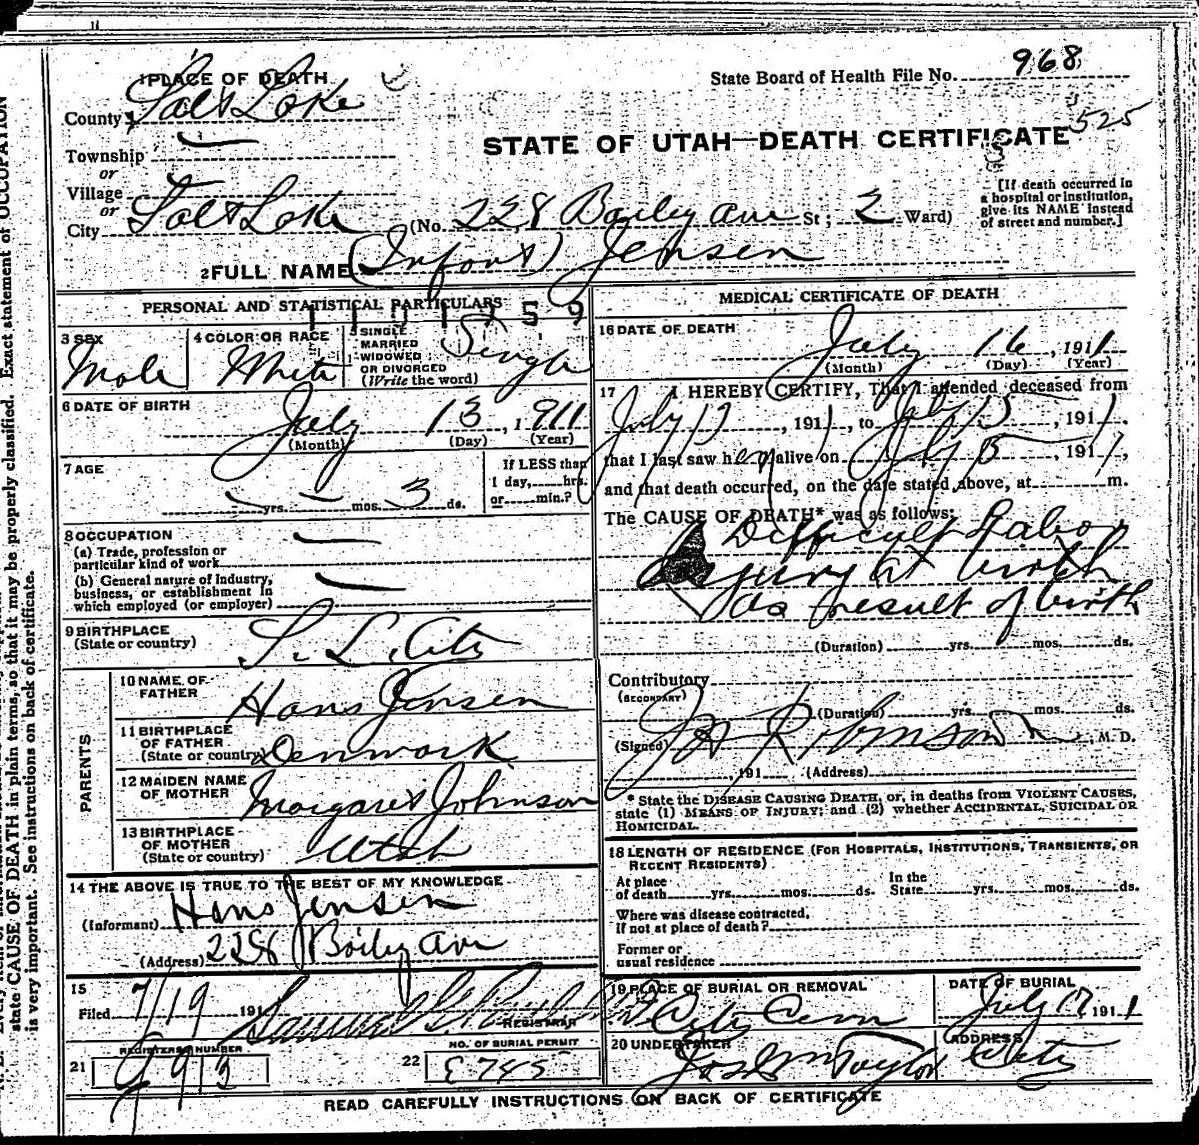 1 PLACE OF DEATH
State Board of Health File No. 968
County Salt Lake
525
STATE OF UTAH—DEATH CERTIFICATE
Township
or
Village
or
City Salt Lake (No. 228 Bailey Ave St; 2 Ward)
[If death occurred in
a hospital or institution,
give its NAME instead
of street and number.]
2 FULL NAME (Infant) Jensen
PERSONAL AND STATISTICAL PARTICULARS
3 SEX
Male
4 COLOR OR RACE
White
5 SINGLE
MARRIED
WIDOWED
OR DIVORCED
(Write the word)
Single
6 DATE OF BIRTH
July 13, 1911
(Month) (Day) (Year)
7 AGE
yrs. mos. 3 ds.
If LESS than
1 day, hrs.
or min.?
8 OCCUPATION
(a) Trade, profession or
particular kind of work
(b) General nature of Industry,
business, or establishment in
which employed (or employer)
9 BIRTHPLACE
(State or country)
S. L. City
PARENTS
10 NAME OF
FATHER
Hans Jensen
11 BIRTHPLACE
OF FATHER
(State or country)
Denmark
12 MAIDEN NAME
OF MOTHER
Margaret Johnson
13 BIRTHPLACE
OF MOTHER
(State or country)
Utah
14 THE ABOVE IS TRUE TO THE BEST OF MY KNOWLEDGE
(Informant) Hans Jensen
(Address) 228 Bailey Ave
15
Filed 7/19 191
REGISTRAR
REGISTERS NUMBER
21
NO. OF BURIAL PERMIT
22 E 745
MEDICAL CERTIFICATE OF DEATH
16 DATE OF DEATH
July 16, 1911
(Month) (Day) (Year)
17 I HEREBY CERTIFY, That I attended deceased from
July 13, 1911, to July 15, 1911.
that I last saw h alive on July 15, 1911,
and that death occurred, on the date stated above, at m.
The CAUSE OF DEATH* was as follows:
Difficult Labor
Injury at birth
as result of birth
(Duration) yrs. mos. ds.
Contributory
(SECONDARY)
(Duration) yrs. mos. ds.
(Signed) Robinson M. D.
, 191 (Address)
* State the DISEASE CAUSING DEATH, or, in deaths from VIOLENT CAUSES,
state (1) MEANS OF INJURY; and (2) whether ACCIDENTAL, SUICIDAL OR
HOMICIDAL.
18 LENGTH OF RESIDENCE (FOR HOSPITALS, INSTITUTIONS, TRANSIENTS, OR
RECENT RESIDENTS)
At place
of death yrs. mos. ds.
In the
State yrs. mos. ds.
Where was disease contracted,
If not at place of death?
Former or
usual residence
19 PLACE OF BURIAL OR REMOVAL
City Cem
DATE OF BURIAL
July 17 1911
20 UNDERTAKER
Jos Wm Taylor
ADDRESS
City
READ CAREFULLY INSTRUCTIONS ON BACK OF CERTIFICATE
state CAUSE OF DEATH in plain terms, so that it may be properly classified. Exact statement of OCCUPATION
is very important. See instructions on back of certificate.